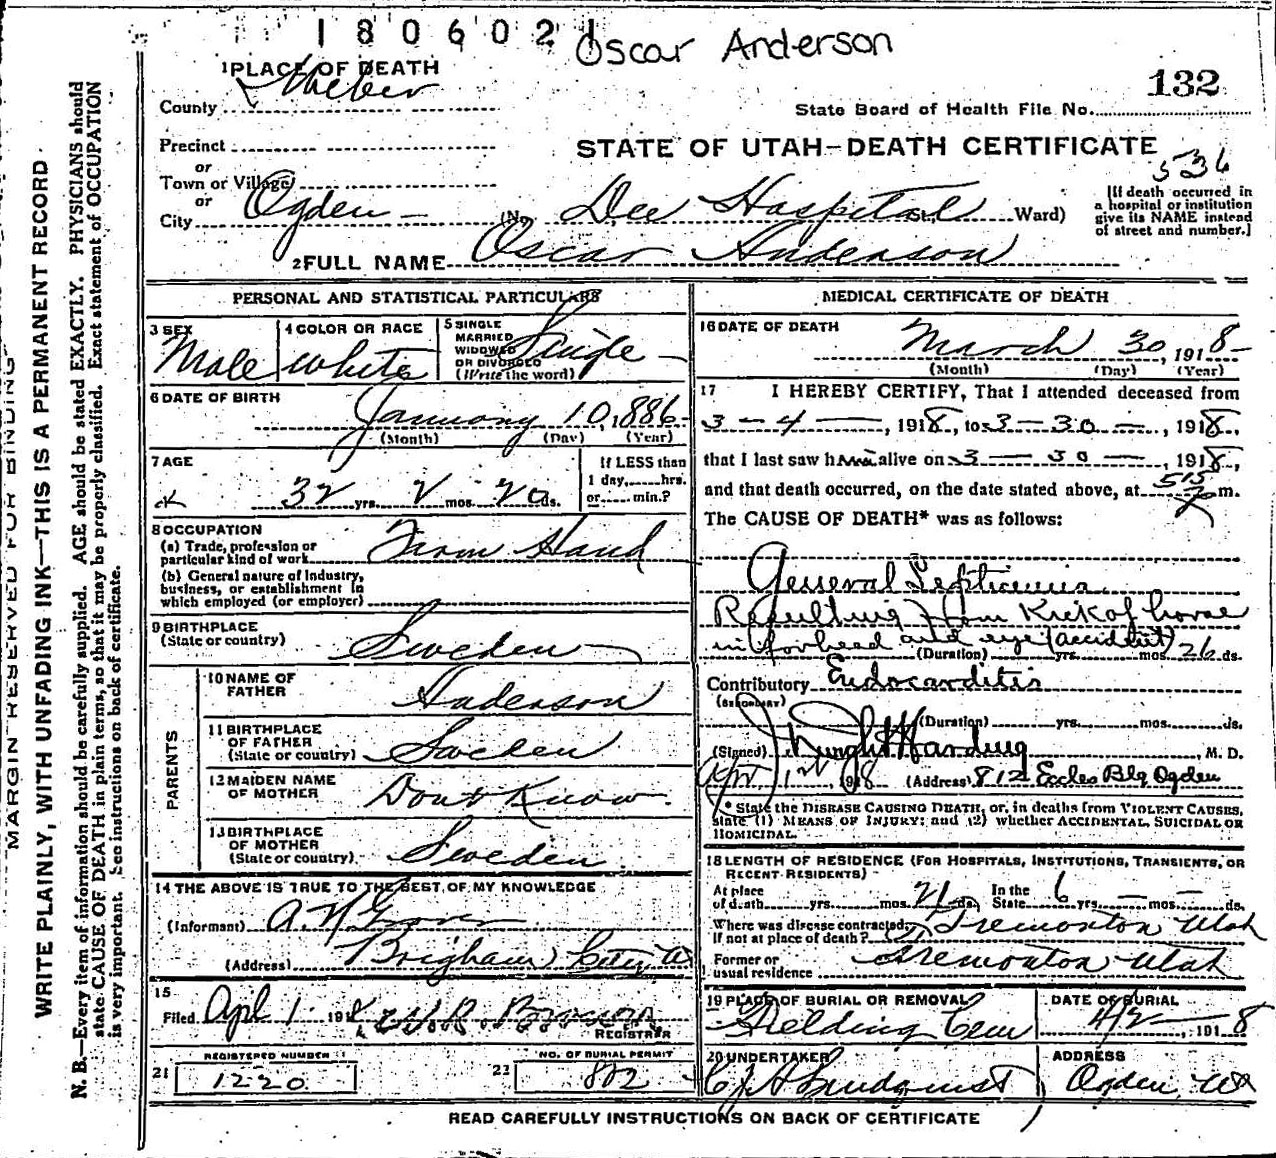 1806021
Oscar Anderson
1 PLACE OF DEATH
132
County Weber
State Board of Health File No.
Precinct
STATE OF UTAH—DEATH CERTIFICATE
or
536
Town or Village
or
City Ogden (No. Dee Hospital St. Ward)
[If death occurred in a hospital or institution give its NAME instead of street and number.]
2 FULL NAME Oscar Anderson
PERSONAL AND STATISTICAL PARTICULARS
3 SEX Male
4 COLOR OR RACE white
5 SINGLE MARRIED WIDOWED OR DIVORCED (Write the word) Single
6 DATE OF BIRTH January 10, 1886
(Month) (Day) (Year)
7 AGE 32 yrs. 2 mos. 20 ds.
If LESS than 1 day, hrs. or min.?
8 OCCUPATION
(a) Trade, profession or particular kind of work Farm Hand
(b) General nature of industry, business, or establishment in which employed (or employer)
9 BIRTHPLACE (State or country) Sweden
PARENTS
10 NAME OF FATHER Anderson
11 BIRTHPLACE OF FATHER (State or country) Sweden
12 MAIDEN NAME OF MOTHER Dont Know
13 BIRTHPLACE OF MOTHER (State or country) Sweden
14 THE ABOVE IS TRUE TO THE BEST OF MY KNOWLEDGE
(Informant) A. N.
(Address) Brigham City, U
15
Filed Apl 1 - 1918 W. R. Brown
REGISTRAR
REGISTERED NUMBER
21 1220
NO. OF BURIAL PERMIT
22 802
MEDICAL CERTIFICATE OF DEATH
16 DATE OF DEATH March 30, 1918
(Month) (Day) (Year)
17 I HEREBY CERTIFY, That I attended deceased from
3 - 4 -, 1918, to 3 - 30 -, 1918,
that I last saw him alive on 3 - 30 -, 1918,
and that death occurred, on the date stated above, at 515 P m.
The CAUSE OF DEATH* was as follows:
General Septicemia
Resulting from Kick of horse
in forhead and eye (accident)
(Duration) yrs. mos. 26 ds.
Contributory Endocarditis
(SECONDARY)
(Duration) yrs. mos. ds.
(Signed) Harding, M. D.
Apr 1st, 1918 (Address) 812 Eccles Blg Ogden
* State the DISEASE CAUSING DEATH, or, in deaths from VIOLENT CAUSES,
state (1) MEANS OF INJURY; and (2) whether ACCIDENTAL, SUICIDAL OR
HOMICIDAL.
18 LENGTH OF RESIDENCE (FOR HOSPITALS, INSTITUTIONS, TRANSIENTS, OR
RECENT RESIDENTS)
At place of death yrs. mos. ds. In the State 6 yrs. - mos. - ds.
Where was disease contracted, If not at place of death? Tremonton Utah
Former or usual residence Tremonton Utah
19 PLACE OF BURIAL OR REMOVAL Fielding Cem
DATE OF BURIAL 4/2 -, 1918
20 UNDERTAKER Lindquist
ADDRESS Ogden, Ut
READ CAREFULLY INSTRUCTIONS ON BACK OF CERTIFICATE
MARGIN RESERVED FOR BINDING
WRITE PLAINLY, WITH UNFADING INK—THIS IS A PERMANENT RECORD
N. B.—Every item of information should be carefully supplied. AGE should be stated EXACTLY. PHYSICIANS should
state CAUSE OF DEATH in plain terms, so that it may be properly classified. Exact statement of OCCUPATION
is very important. See instructions on back of certificate.